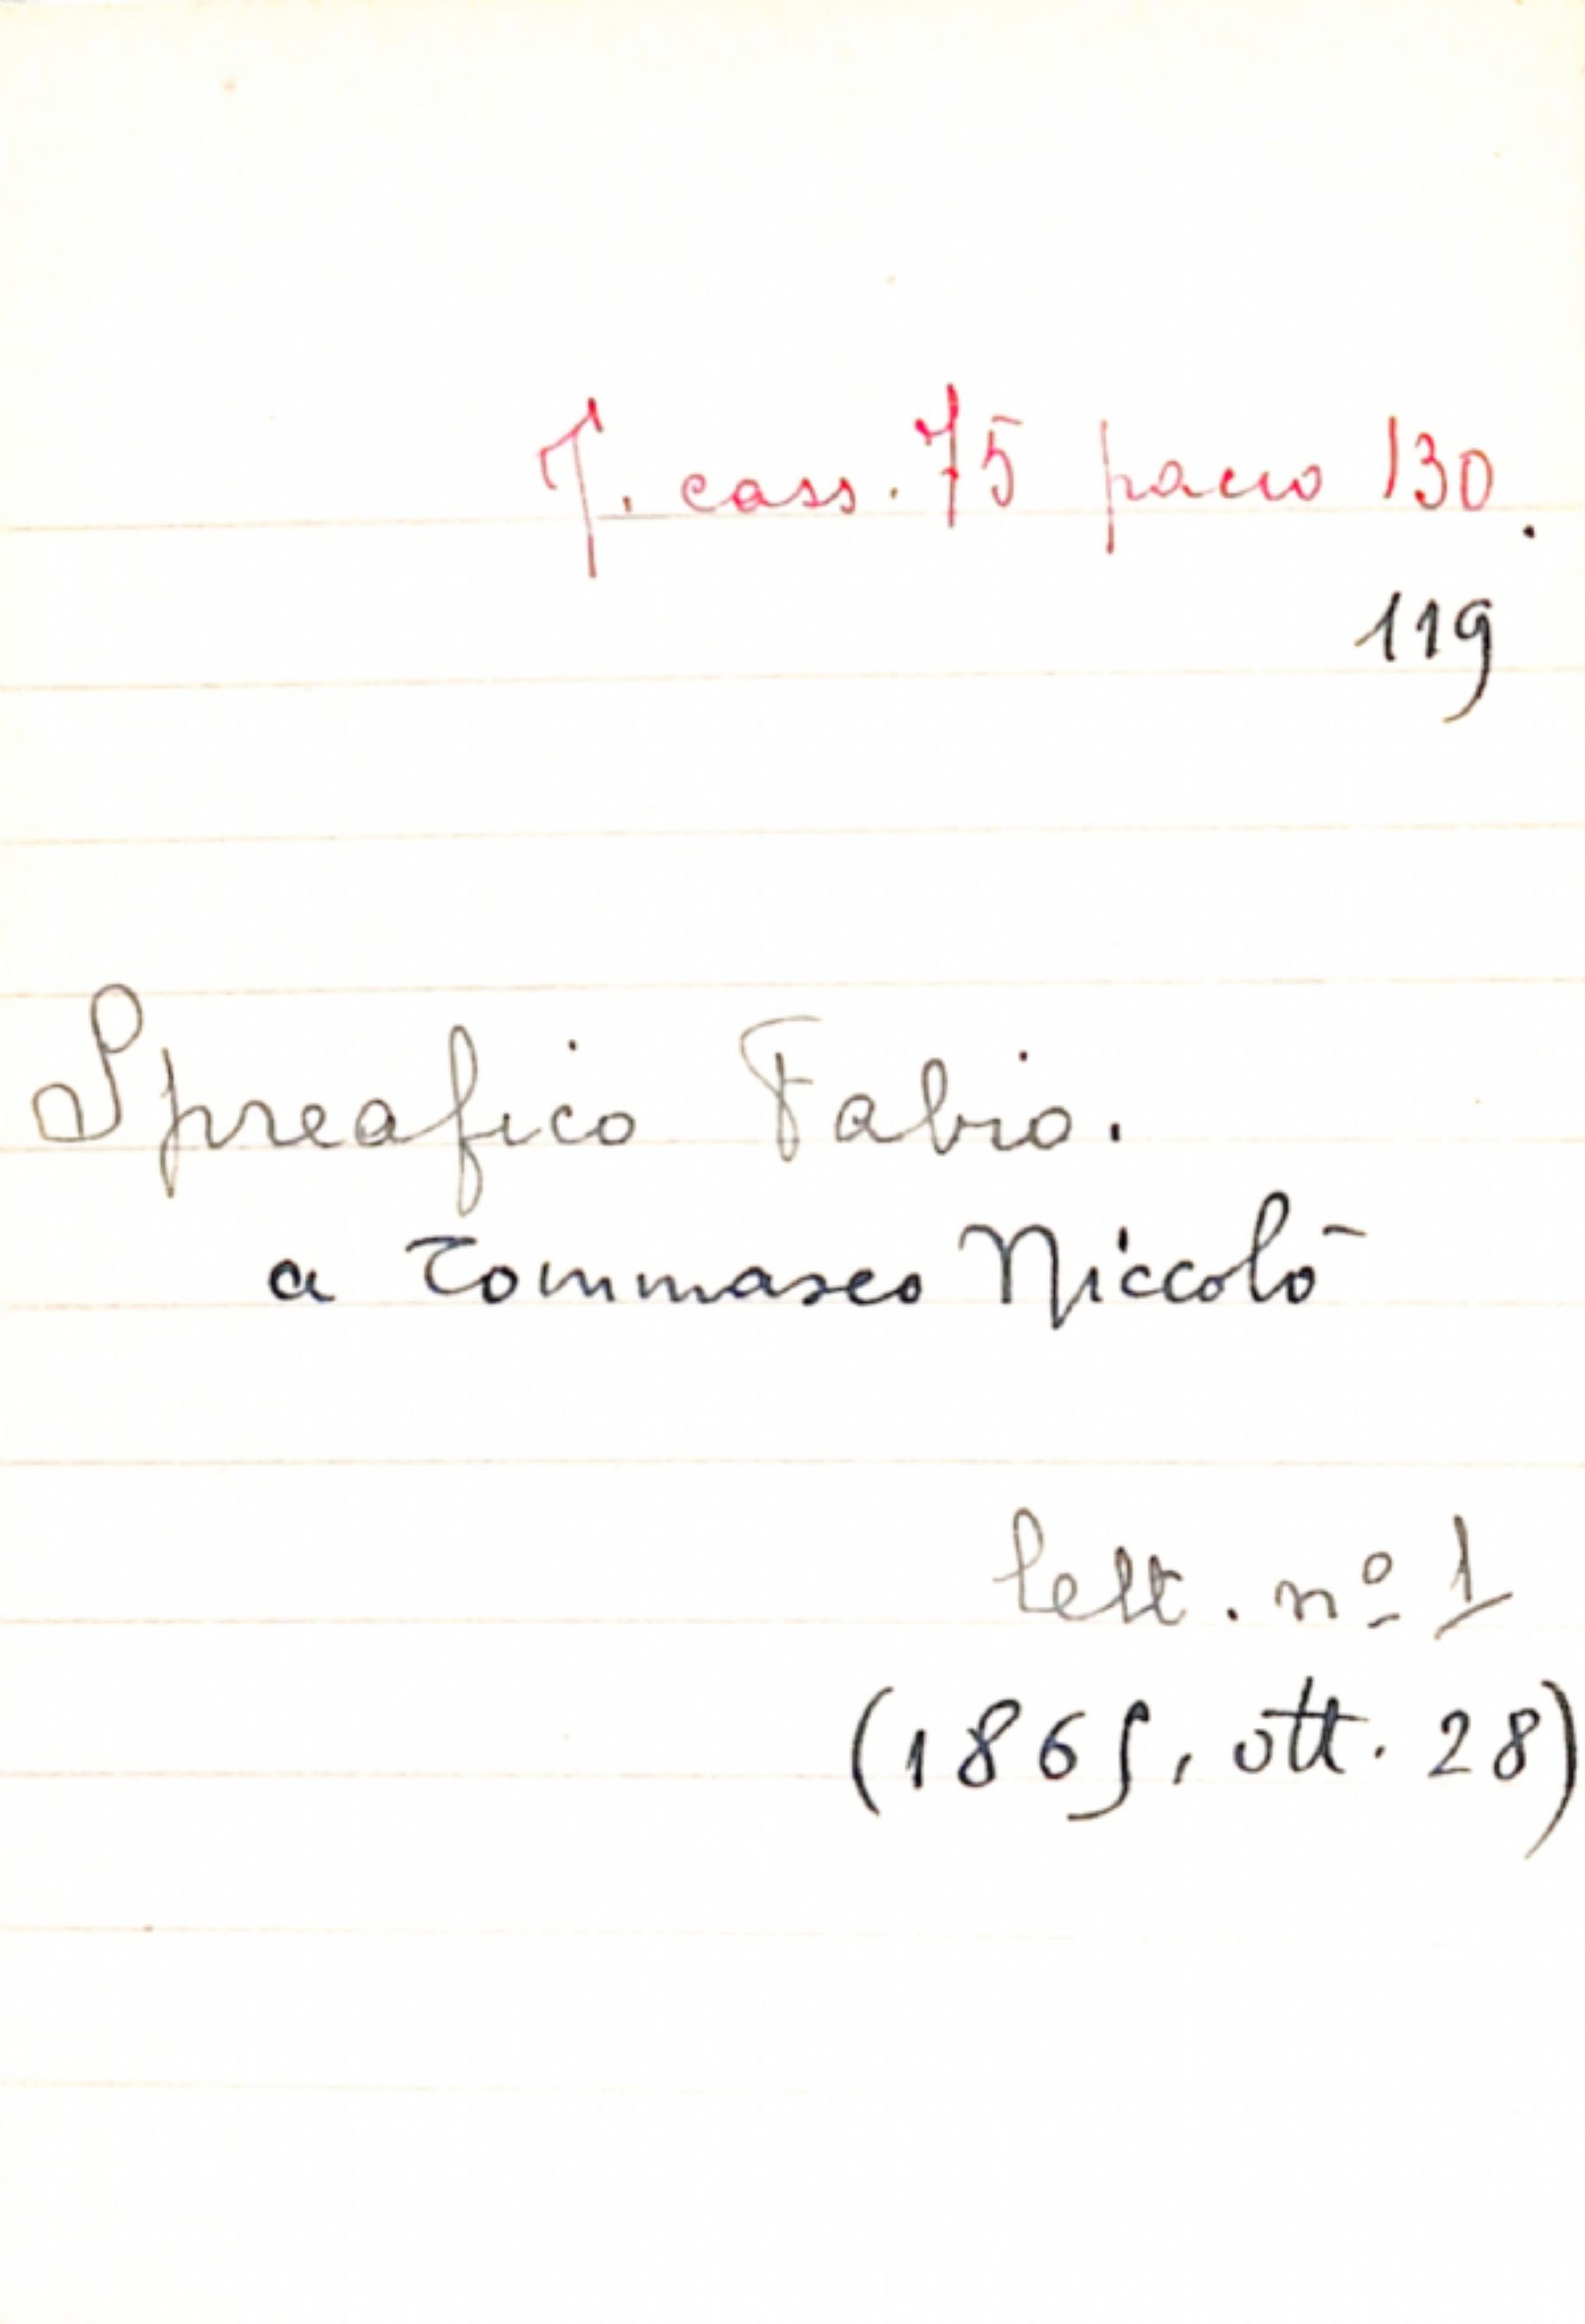 T. cass. 75 pacco 130.
119
Spreafico Fabio.
a Tommaseo Niccolò
lett. nº 1
(1865, ott. 28)